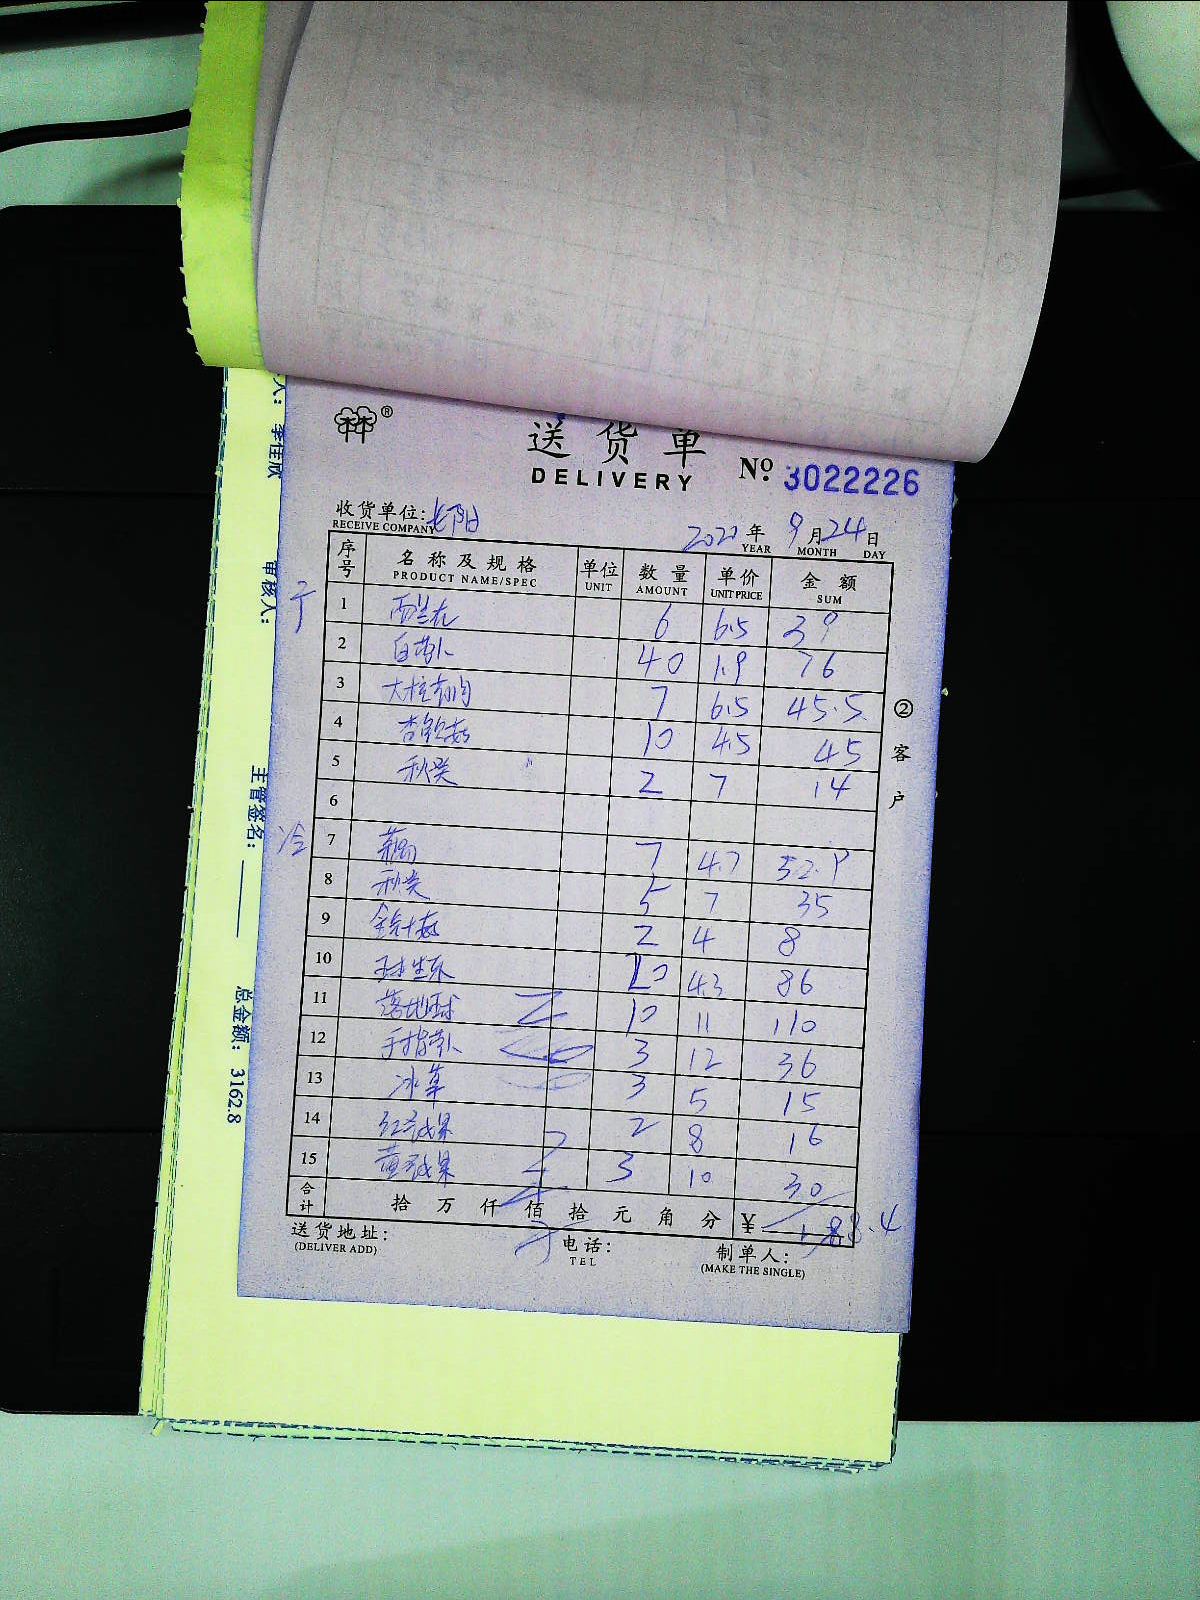 送货单
DELIVERY
No. 3022226
收货单位:
RECEIVE COMPANY
2021年 9月24日
YEAR MONTH DAY
序号 名称及规格 单位 数量 单价 金额
PRODUCT NAME/SPEC UNIT AMOUNT UNIT PRICE SUM
1 西兰花 6 6.5 39
2 白萝卜 40 1.9 76
3 7 6.5 45.5
4 杏鲍菇 10 4.5 45
5 秋葵 2 7 14
6
冷
7 7 4.7 32.9
8 秋葵 5 7 35
9 金针菇 2 4 8
10 球生菜 20 4.3 86
11 落地球 10 11 110
12 手指萝卜 3 12 36
13 冰草 3 5 15
14 红圣女果 2 8 16
15 黄圣女果 3 10 30
合计 拾万仟佰拾元角分 ¥
送货地址: 电话: 制单人:
(DELIVER ADD) TEL (MAKE THE SINGLE)
②客户
人: 李佳欣
审核人:
主管签名:
总金额: 3162.8